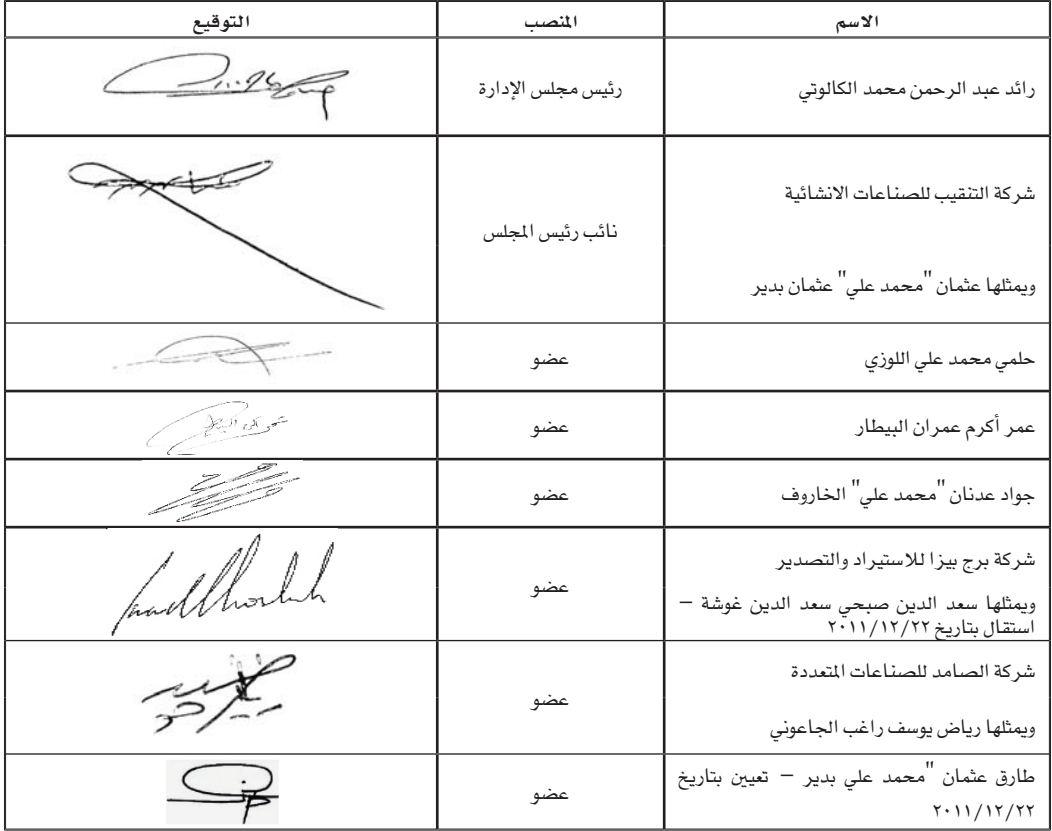 الاسم المنصب التوقيع
رائد عبد الرحمن محمد الكالوتي رئيس مجلس الإدارة
شركة التنقيب للصناعات الانشائية
نائب رئيس المجلس
ويمثلها عثمان "محمد علي" عثمان بدير
حلمي محمد علي اللوزي عضو
عمر أكرم عمران البيطار عضو
جواد عدنان "محمد علي" الخاروف عضو
شركة برج بيزا للاستيراد والتصدير
عضو
ويمثلها سعد الدين صبحي سعد الدين غوشة –
استقال بتاريخ ٢٠١١/١٢/٢٢
شركة الصامد للصناعات المتعددة
عضو
ويمثلها رياض يوسف راغب الجاعوني
طارق عثمان "محمد علي بدير – تعيين بتاريخ
عضو
٢٠١١/١٢/٢٢